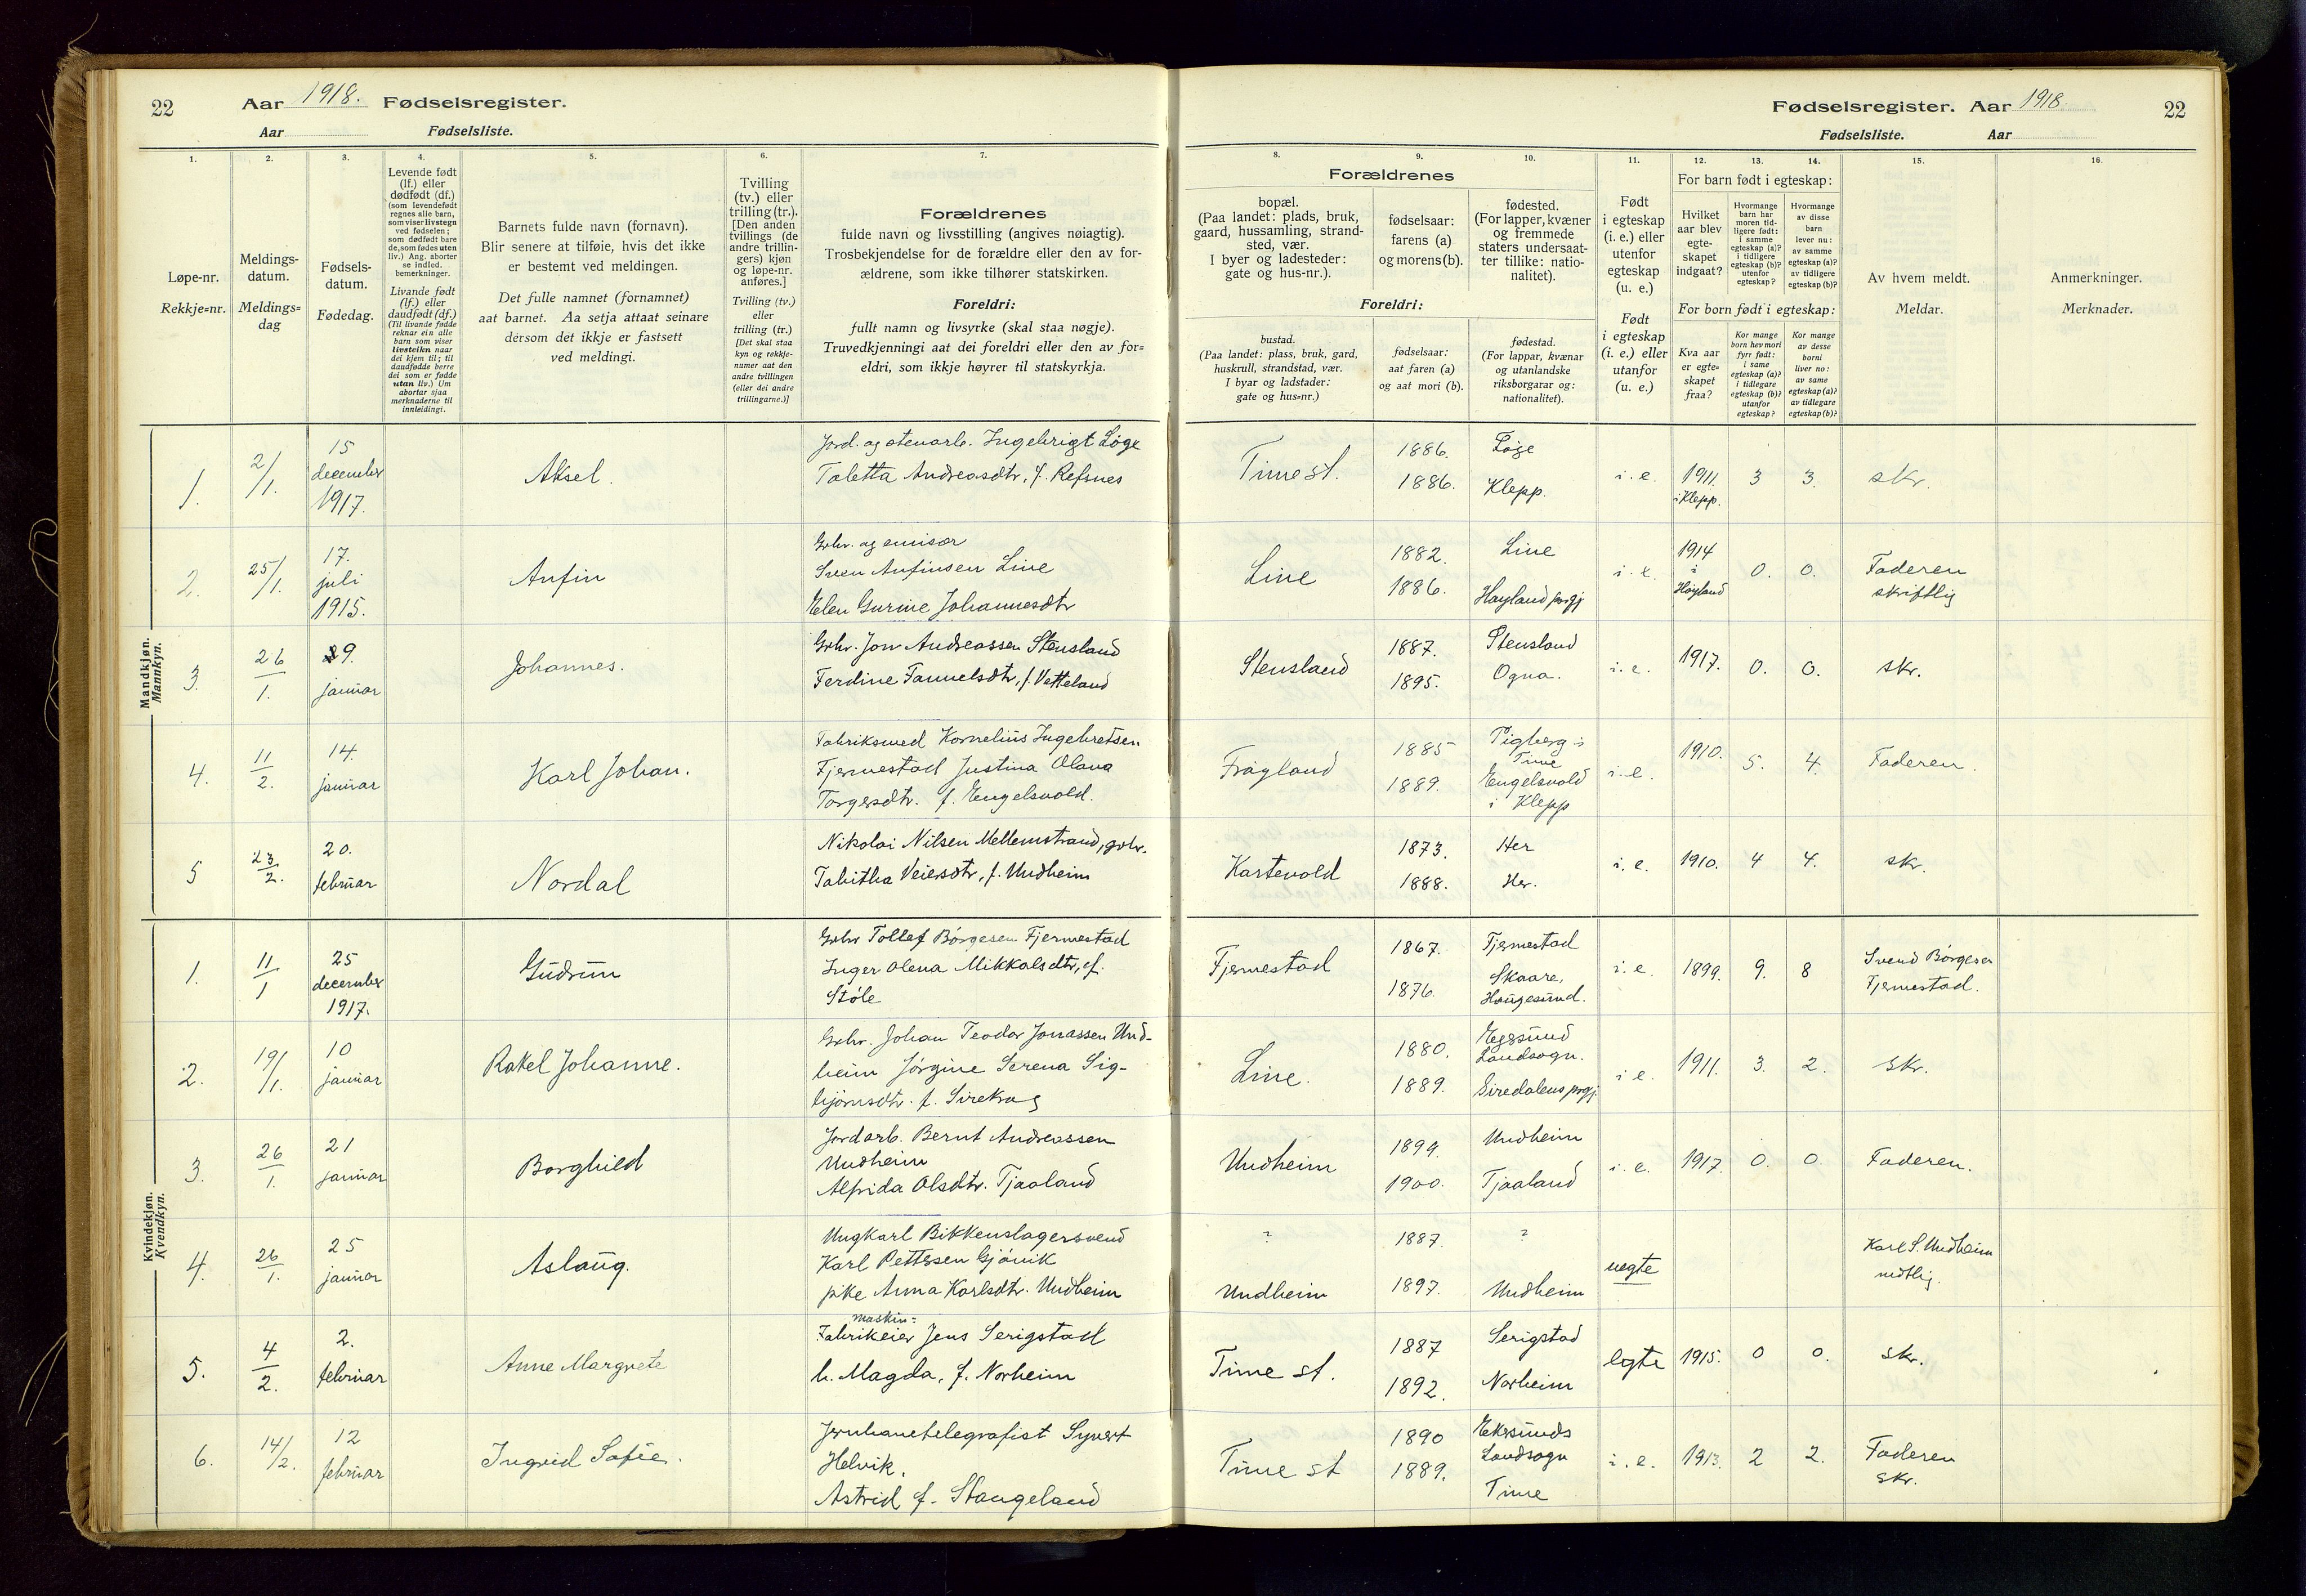 22 Aar 1918. Fødselsregister.
Aar Fødselsliste.
Fødselsregister. Aar 1918. 22
Fødselsliste. Aar
1. 2. 3. 4. 5. 6. 7.
Løpe-nr.
Rekkje=nr.
Meldings-
datum.
Meldings=
dag
Fødsels-
datum.
Fødedag.
Levende født
(lf.) eller
dødfødt (df.)
(som levendefødt
regnes alle barn,
som viser livstegn
ved fødselen;
som dødfødt bare
de, som fødes uten
liv.) Ang. aborter
se indled.
bemerkninger.
Livande født
(lf.) eller
daudfødt (df.)
(Til livande fødde
reknar ein alle
barn som viser
livsteikn naar
dei kjem til; til
daudfødde berre
dei som er fødde
utan liv.) Um
abortar sjaa
merknaderne til
innleidingi.
Barnets fulde navn (fornavn).
Blir senere at tilføie, hvis det ikke
er bestemt ved meldingen.
Det fulle namnet (fornamnet)
aat barnet. Aa setja attaat seinare
dersom det ikkje er fastsett
ved meldingi.
Tvilling
(tv.) eller
trilling (tr.).
[Den anden
tvillings (de
andre trillin-
gers) kjøn
og løpe-nr.
anføres.]
Tvilling (tv.)
eller
trilling (tr.)
[Det skal staa
kyn og rekkje-
numer aat den
andre tvillingen
(eller dei andre
trillingarne.)]
Forældrenes
fulde navn og livsstilling (angives nøiagtig).
Trosbekjendelse for de forældre eller den av for-
ældrene, som ikke tilhører statskirken.
Foreldri:
fullt namn og livsyrke (skal staa nøgje).
Truvedkjenningi aat dei foreldri eller den av for=
eldri, som ikkje høyrer til statskyrkja.
8. 9. 10. 11. 12. 13. 14. 15. 16.
Forældrenes
bopæl.
(Paa landet: plads, bruk,
gaard, hussamling, strand-
sted, vær.
I byer og ladesteder:
gate og hus-nr.).
fødselsaar:
farens (a)
og morens (b).
fødested.
(For lapper, kvæner
og fremmede
staters undersaat-
ter tillike: natio-
nalitet).
Foreldri:
bustad.
(Paa landet: plass, bruk, gard,
huskrull, strandstad, vær.
I byar og ladstader:
gate og hus=nr.)
fødselsaar:
aat faren (a)
og aat mori (b).
fødestad.
(For lappar, kvænar
og utanlandske
riksborgarar og:
nationalitet).
Født
i egteskap
(i. e.) eller
utenfor
egteskap
(u. e.)
Født
i egteskap
(i. e.) eller
utanfor
(u. e.)
For barn født i egteskap:
Hvilket
aar blev
egte-
skapet
indgaat?
Hvormange
barn har
moren tid-
ligere født:
i samme
egteskap (a)?
i tidligere
egteskap (b)?
utenfor
egteskap?
Hvormange
av disse
barn
lever nu:
av samme
egteskap (a)?
av tidligere
egteskap (b)?
For born født i egteskap:
Kva aar
er egte=
skapet
fraa?
Kor mange
born hev mori
fyrr født:
i same
egteskap (a)?
i tidlegare
egteskap (b)?
utanfor
egteskap?
Kor mange
av desse
borni
liver no:
av same
egteskap (a)?
av tidlegare
egteskap (b)?
Av hvem meldt.
Meldar.
Anmerkninger.
Merknader.
Mandkjøn.
Mannkyn.
1. 2/1. 15 december 1917. Aksel. Jord. og stenarb. Ingebrigt Løge
Taletta Andreasdtr, f. Refsnes
Time st. 1886. 1886. Løge Klepp. i. e. 1911. i Klepp. 3 3. skr.
2. 25/1. 17. juli 1915. Anfin Grbr. og emisær
Sven Anfinsen Line
Elen Gurine Johannesdtr
Line 1882. 1886. Line Høyland prgj i. e. 1914 i Høyland 0. 0. Faderen skriftlig
3. 26/1. 29. januar Johannes. Grbr. Jon Andreassen Stensland
Ferdine Fannelsdtr, f. Vetteland
Stensland 1887. 1895. Stensland Ogna. i. e. 1917. 0. 0. skr.
4. 11/2. 14. januar Karl Johan. Fabriksmed Kornelius Ingebretsen
Fjermestad Justina Olava
Torgersdtr. f. Engelsvold.
Frøyland 1885 1889. Tigberg i Time Engelsvold i Klepp i. e. 1910. 5. 4. Faderen.
5 23/2. 20. februar Nordal Nikolai Nilsen Mellemstrand, grbr.
Tabitha Veiersdtr, f. Undheim
Kartevold 1873. 1888. Her Her. i. e. 1910. 4 4. skr.
Kvindekjøn.
Kvendkyn.
1. 11/1 25 december 1917. Gudrun Grbr Tollef Børgesen Fjermestad
Inger Olena Mikkalsdtr, f.
Støle
Fjermestad 1867. 1876. Fjermestad Skaare, Haugesund. i. e. 1899. 9. 8 Svend Børgesen Fjermestad.
2. 19/1. 10 januar Rakel Johanne. Grbr. Johan Teodor Jonassen Und-
heim Jørgine Serena Sig-
bjørnsdtr. f. Sirekrag
Line. 1880. 1889. Egesund Landsogn. Siredalens prgj. i e. 1911. 3. 2. skr.
3. 26/1. 21 januar Borghild Jordarb. Bernt Andreassen
Undheim
Alfrida Olsdtr. Tjaaland
Undheim 1899. 1900. Undheim Tjaaland i. e. 1917. 0. 0. Faderen.
4. 26/1. 25 januar Aslaug. Ungkarl Blikkenslagersvend
Karl Pettersen Gjøvik
pike Anna Karlsdtr. Undheim
? Undheim 1887. 1897. ? Undheim uegte Karl S. Undheim mdtlig.
5. 4/2. 2. februar Anne Margrete maskin=
Fabrikeier Jens Serigstad
h. Magda, f. Norheim
Time st. 1887 1892. Serigstad Norheim egte 1915. 0 0. skr.
6. 14/2. 12 februar Ingrid Sofie. Jernbanetelegrafist Syvert
Helvik.
Astrid f. Stangeland
Time st 1890 1889. Ekersunds Landsogn Time i. e. 1913. 2 2. Faderen skr.